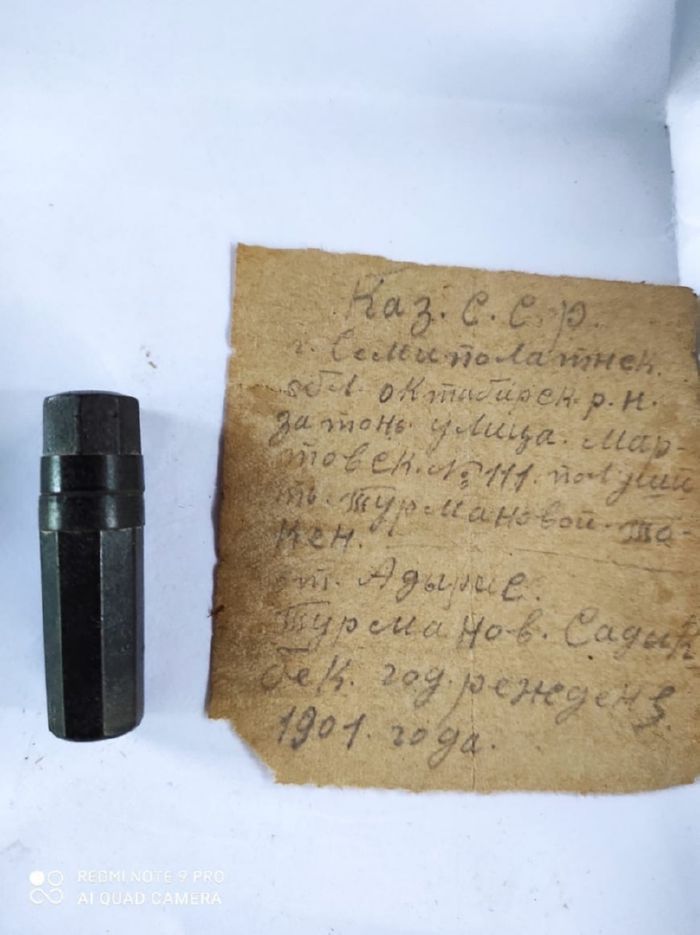 Каз. С. С. р.
г. Семиполатнск.
обл. октабирск. р. н.
затонь улица. Мар-
товск. № 111. полуши
ть. Турмановой. та-
кен.
от. Адырис.
Турманов. Садык
бек. год. режден
1901. года.
REDMI NOTE 9 PRO
AI QUAD CAMERA